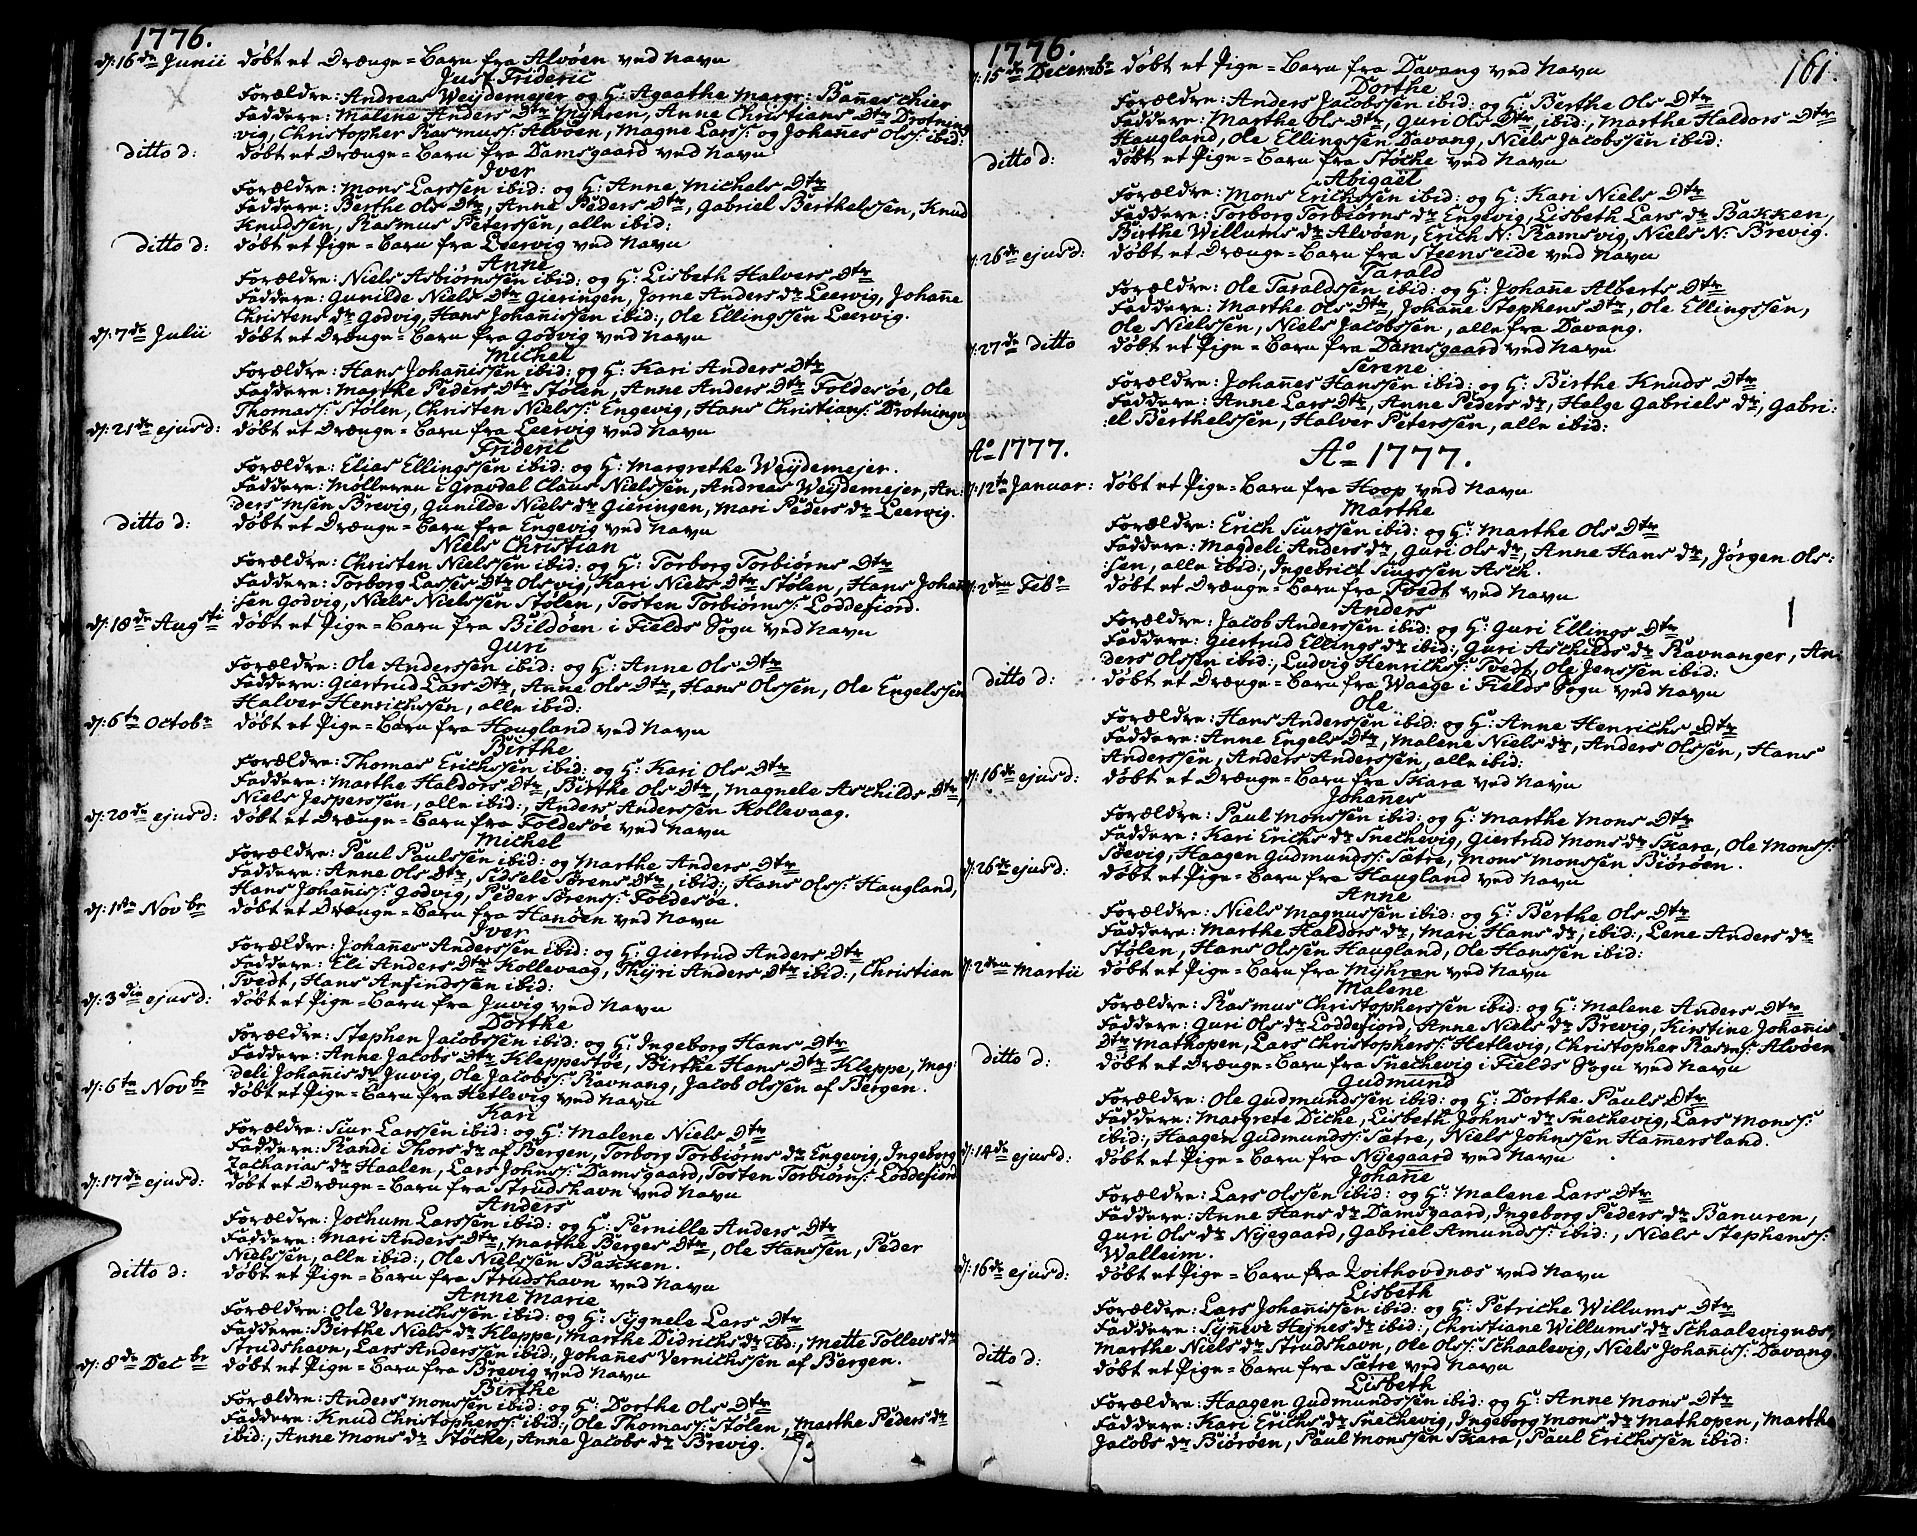 1776.
d: 16de Junii døbt et Drænge=Barn fra Alvøen ved Navn
Just Frideric
Forældre: Andreas Weijdemejer og H: Agaathe Margr: Banneschier
Faddere: Malene Anders Dtr Myhren, Anne Christians Dtr Drotning
vig, Christopher Rasmuss: Alvøen, Magne Larss: og Johañes Olss: ibid:
ditto d: døbt et Drænge=Barn fra Damsgaard ved Navn
Iver
Forældre: Mons Larssen ibid: og H: Anne Michels Dtr
Faddere: Berthe Ols Dtr, Anne Peders Dtr, Gabriel Berthelssen, Knud
Knudssen, Rasmus Peterssen, alle ibid:
ditto d: døbt et Pige=Barn fra Leervig ved Navn
Anne
Forældre: Niels Asbiørnssen ibid: og H: Lisbeth Halvers Dtr
Faddere: Gunilde Niels Dtr Gieringen, Jorne Anders dr Leervig, Johañe
Christens dr Godvig, Hans Johañissen ibid:, Ole Ellingssen Leervig.
d: 7de Julii døbt et Drænge=Barn fra Godvig ved Navn
Michel
Forældre: Hans Johañissen ibid: og H: Kari Anders Dtr
Faddere: Marthe Peders Dtr Stølen, Anne Anders Dtr Foldesøe, Ole
Thomass: Stølen, Christen Nielss: Engevig, Hans Christians: Drotningvig
d: 21de ejusd: døbt et Drænge=Barn fra Leervig ved Navn
Frideric
Forældre: Elias Ellingssen ibid: og H: Margrethe Weijdemejer.
Faddere: Mølleren i Gravdal Claus Nielssen, Andreas Weijdemejer, An-
ders Msen Brevig, Gunilde Niels dr Gieringen, Mari Peders dr Leervig.
ditto d: døbt et Drænge=Barn fra Engevig ved Navn
Niels Christian
Forældre: Christen Nielssen ibid: og H: Torborg Torbiørns Dtr
Faddere: Torborg Lasses Dtr Olsvig, Kari Niels Dtr Stølen, Hans Johañ
:sen Godvig, Niels Nielssen Stølen, Tosten Torbiørns: Loddefiord.
d: 18de Augsti døbt et Pige=Barn fra Bildøen i Fields Sogn ved Navn
Guri
Forældre: Ole Anderssen ibid: og H: Anne Ols Dtr
Faddere: Giertrud Lars Dtr, Anne Ols Dtr, Hans Olssen, Ole Engelssen
Halver Henrichssen, alle ibid:
d: 6te Octobr døbt et Pige=Barn fra Hougland ved Navn
Birthe
Forældre: Thomas Erichssen ibid: og H: Kari Ols Dtr
Faddere: Marthe Haldors Dtr, Birthe Ols Dtr, Magnele Aschilds Dtr,
Niels Jesperssen, alle ibid:, Anders Anderssen Kollevaag.
d: 20de ejusd: døbt et Drænge=Barn fra Foldesøe ved Navn
Michel
Forældre: Paul Paulssen ibid: og Marthe Anders Dtr
Faddere: Anne Ols Dtr, Sidsele Sørens Dtr, ibid:, Hans Olss: Haugland,
Hans Johañiss: Godvig, Peder Sørenss: Foldesøe.
d: 1ste Novbr døbt et Drænge=Barn fra Hanøen ved Navn
Iver
Forældre: Johañes Anderssen ibid: og H: Giertrud Anders Dtr
Faddere: Eli Anders Dtr Kollevaag, Thyri Anders Dtr ibid:, Christian
Tvedt, Hans Anfindssen ibid:
d: 3die ejusd: døbt et Pige=Barn fra Juvig ved Navn
Dorthe
Forældre: Stephen Jacobssen ibid: og H: Ingeborg Hans Dtr
Faddere: Anne Jacobs Dtr Kleppestøe, Birthe Hans Dtr Kleppe, Mag-
deli Johañis dr Juvig, Ole Jacobs: Ravnang, Jacob Olssen af Bergen.
d: 6te Novbr døbt et Pige=Barn fra Hetlevig ved Navn
Kari
Forældre: Siur Larssen ibid: og H: Malene Niels Dtr
Faddere: Randi Thors dr af Bergen, Torborg Torbiørns dr Engevig, Ingeborg
Zacharias dr Haalen, Lars Johns: Damsgaard, Tosten Torbiørns: Loddefiord
d: 17de ejusd: døbt et Drænge=Barn fra Strudshavn ved Navn
Anders
Forældre: Jochum Larssen ibid: og H: Pernille Anders Dtr
Faddere: Mari Anders Dtr, Marthe Berges Dtr, Ole Hanssen, Peder
Nielssen, alle ibid:, Ole Nielssen Bakken.
ditto d: døbt et Pige=Barn fra Strudshavn ved Navn
Anne Marie
Forældre: Ole Vernichssen ibid: og H: Sygnele Lars Dtr
Faddere: Birthe Niels dr Kleppe, Marthe Didrichs dr ibid:, Mette Tollevs dr
Strudshavn, Lars Anderssen ibid:, Johañes Vernichssen af Bergen.
d: 8de Decbr døbt et Pige=Barn fra Brevig ved Navn
Birthe
Forældre: Anders Monssen ibid: og H: Dorthe Ols Dtr
Faddere: Knud Christophers: ibid:, Ole Thomass: Stølen, Marthe Peders dr
ibid:, Anne Mons dr Støche, Anne Jacobs dr Brevig.
1776.
161.
d: 15de Decembr døbt et Pige=Barn fra Davang ved Navn
Dorthe
Forældre: Anders Jacobssen ibid: og H: Berthe Ols Dtr
Faddere: Marthe Ols Dtr, Guri Ols Dtr, ibid:, Marthe Haldors Dtr
Haugland, Ole Ellingssen Davang, Niels Jacobssen ibid:
ditto d: døbt et Pige=Barn fra Støche ved Navn
Abigaël
Forældre: Mons Erichssen ibid: og H: Kari Niels Dtr
Faddere: Torborg Torbiørns dr Engevig, Lisbeth Lars dr Bakken,
Birthe Willums dr Alvøen, Erich N: Ramsvig, Niels N: Brevig.
d: 26de ejusd: døbt et Drænge=Barn fra Steenseide ved Navn
Tarald
Forældre: Ole Taraldssen ibid: og H: Johañe Alberts Dtr
Faddere: Marthe Ols Dtr, Johane Stephens Dtr, Ole Ellingssen,
Ole Nielssen, Niels Jacobssen, alle fra Davang.
d: 27de ditto døbt et Pige=Barn fra Damsgaard ved Navn
Serene
Forældre: Johañes Hanssen ibid: og H: Birthe Knuds Dtr
Faddere: Anne Lars Dtr, Anne Peders dr, Helge Gabriels dr, Gabri-
:el Berthelssen, Halver Peterssen, alle ibid:
Ao 1777. Ao 1777.
d: 12te Januar: døbt et Pige=Barn fra Hoop ved Navn
Marthe
Forældre: Erich Siurssen ibid: og H: Marthe Ols Dtr
Faddere: Magdeli Anders dr, Guri Ols dr, Anne Hans dr, Jørgen Ols:
:sen, alle ibid:, Ingebrict Siurssen Asch.
d: 2den Febr døbt et Drænge=Barn fra Tvedt ved Navn
Anders
Forældre: Jacob Anderssen ibid: og H: Guri Ellings Dtr
Faddere: Giertrud Ellings dr ibid:, Guri Aschilds dr Ravnanger, An-
ders Olssen ibid:, Ludvig Henrichs: Tvedt, Ole Jenssen ibid:
ditto d: døbt et Drænge=Barn fra Waage i Fields Sogn ved Navn
Ole
Forældre: Hans Anderssen ibid: og H: Anne Henrichs Dtr
Faddere: Anne Engels Dtr, Malene Niels dr, Anders Olssen, Hans
Anderssen, Anders Anderssen, alle ibid:
d: 16de ejusd: døbt et Drænge=Barn fra Skara ved Navn
Johañes
Forældre: Paul Monssen ibid: og H: Marthe Mons Dtr
Faddere: Kari Erichs dr Snechevig, Giertrud Mons dr Skara, Ole Monss:
Søevig, Haagen Gudmunds: Sætre, Mons Monssen Biørøen.
d: 26de ejusd: døbt et Pige=Barn fra Haugland ved Navn
Anne
Forældre: Niels Magnussen ibid: og H: Berthe Ols Dtr
Faddere: Marthe Haldors dr, Mari Hans dr, ibid:, Lene Anders dr
Stølen, Hans Olssen Haugland, Ole Hanssen ibid:
d: 2den Martii døbt et Pige=Barn fra Myhren ved Navn
Malene
Forældre: Rasmus Christopherssen ibid: og H: Malene Anders Dtr
Faddere: Guri Ols dr Loddefiord, Anne Niels dr Brevig, Kirstine Johañis
Dtr Mathopen, Lars Christophers: Hetlevig, Christopher Rasms: Alvøen
ditto d: døbt et Drænge=Barn fra Snechevig i Fields Sogn ved Navn
Gudmund
Forældre: Ole Gudmundssen ibid: og H: Dorthe Pauls Dtr
Faddere: Margrete Diche, Lisbeth Johns dr Snechevig, Lars Monss:
ibid:, Haagen Gudmunds: Sætre, Niels Johnssen Hamersland.
d: 14de ejusd: døbt et Pige=Barn fra Nijegaard ved Navn
Johañe
Forældre: Lars Olssen ibid: og H: Malene Lars Dtr
Faddere: Anne Hans dr Damsgaard, Ingeborg Peders dr Banuren,
Guri Ols dr Nijegaard, Gabriel Amunds: ibid:, Niels Stephens:
Walleim.
d: 16de ejusd: døbt et Pige=Barn fra Qvithovdnæs ved Navn
Lisbeth
Forældre: Lars Johañissen ibid: og H: Petriche Willums Dtr
Faddere: Synneve Hejnes dr ibid:, Christiane Willums dr Schaalevignæs,
Marthe Niels dr Strudshavn, Ole Olss: Schaalevig, Niels Johañis: Davang.
ditto d: døbt et Pige=Barn fra Sætre ved Navn
Lisbeth
Forældre: Haagen Gudmundssen ibid: og H: Anne Mons Dtr
Faddere: Kari Erichs dr Snechevig, Ingeborg Mons dr Mathopen, Marthe
Jacobs dr Biørøen, Paul Monssen Skara, Paul Erichssen ibid: